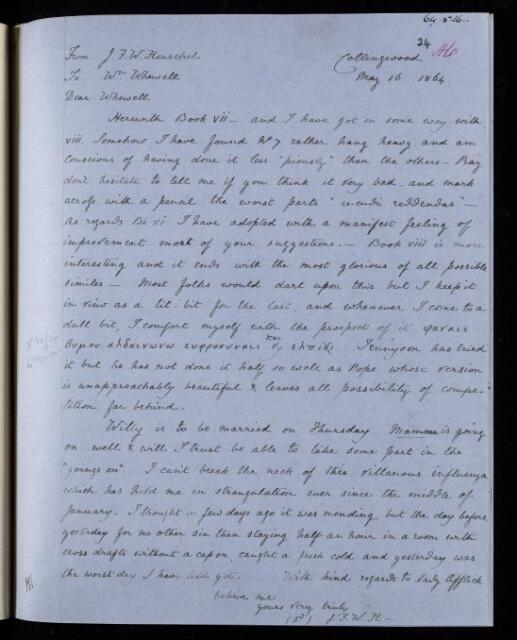 64·5·16
24
From J. F. W. Herschel Collingwood
To Wm Whewell May 16 1864
Dear Whewell
Herewith Book vii – and I have got on some way with
viii Somehow I have found No 7 rather hang heavy and am
conscious of having done it less "piously" than the others – Pray
don't hesitate to tell me if you think it very bad – and mark
across with a pencil the worst parts "incudi reddendas" –
As regards Bk vi I have adopted with a manifest feeling of
improvement most of your suggestions. – Book viii is more
interesting and it ends with the most glorious of all possible
similes – Most folks would dart upon this but I keep it
in view as a tit-bit for the last, and whenever I come to a
dull bit, I comfort myself with the prospect of it φαναις
θυμον αλδαινωνω ευφροσυναις τῃ ελπιδι. Tennyson has tried
it but he has not done it half so well as Pope whose version
is unapproachably beautiful & leaves all possibility of compe-
tition far behind.
Willy is to be married on Thursday. Mamma is going
on well & will I trust be able to take some part in the
"goings on". I can't break the neck of this villanous influenza
which has held me in strangulation ever since the middle of
January. I thought a few days ago it was mending but the day before
yesterday for no other sin than staying half an hour in a room with
cross drafts without a cap on, caught a fresh cold and yesterday was
the worst day I have had yet. With kind regards to Lady Affleck
believe me
yours very truly
(sd) J. F. W. H. –